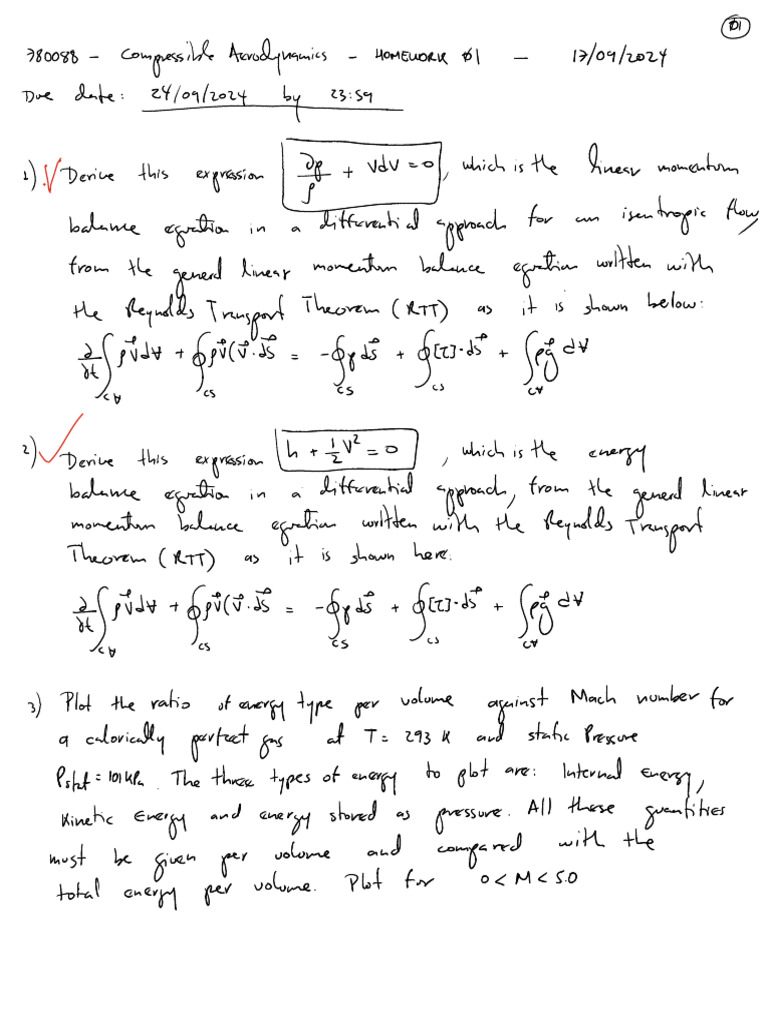 01
780088 - Compressible Aerodynamics - HOMEWORK 01 - 17/09/2024
Due date: 24/09/2024 by 23:59
1) Derive this expression ∂p/ρ + VdV = 0, which is the linear momentum
balance equation in a differential approach for an isentropic flow
from the general linear momentum balance equation written with
the Reynolds Transport Theorem (RTT) as it is shown below:
∂/∂t ∫_{CV} ρV⃗ dV + ∮_{CS} ρV⃗(V⃗·dS⃗ = -∮_{CS} p dS⃗ + ∮_{CS} [τ]·dS⃗ + ∫_{CV} ρg⃗ dV
2) Derive this expression h + 1/2 V² = 0, which is the energy
balance equation in a differential approach, from the general linear
momentum balance equation written with the Reynolds Transport
Theorem (RTT) as it is shown here:
∂/∂t ∫_{CV} ρV⃗ dV + ∮_{CS} ρV⃗(V⃗·dS⃗ = -∮_{CS} p dS⃗ + ∮_{CS} [τ]·dS⃗ + ∫_{CV} ρg⃗ dV
3) Plot the ratio of energy type per volume against Mach number for
a calorically perfect gas at T = 293 K and static Pressure
Pstat = 101 kPa. The three types of energy to plot are: Internal Energy,
Kinetic Energy and energy stored as pressure. All these quantities
must be given per volume and compared with the
total energy per volume. Plot for 0 < M < 5.0